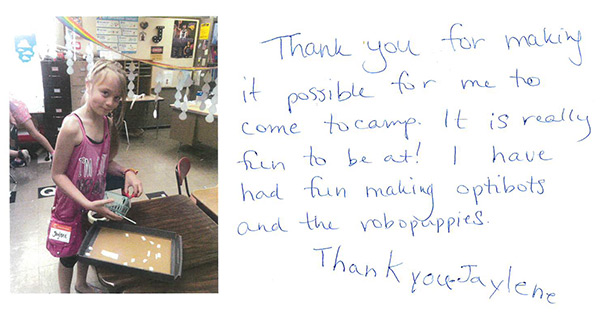 Thank you for making
it possible for me to
come to camp. It is really
fun to be at! I have
had fun making optibots
and the robopuppies.
Thank you-Jaylene